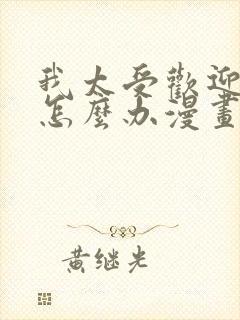 我太受歡迎
怎麼办漫畫
黄继光